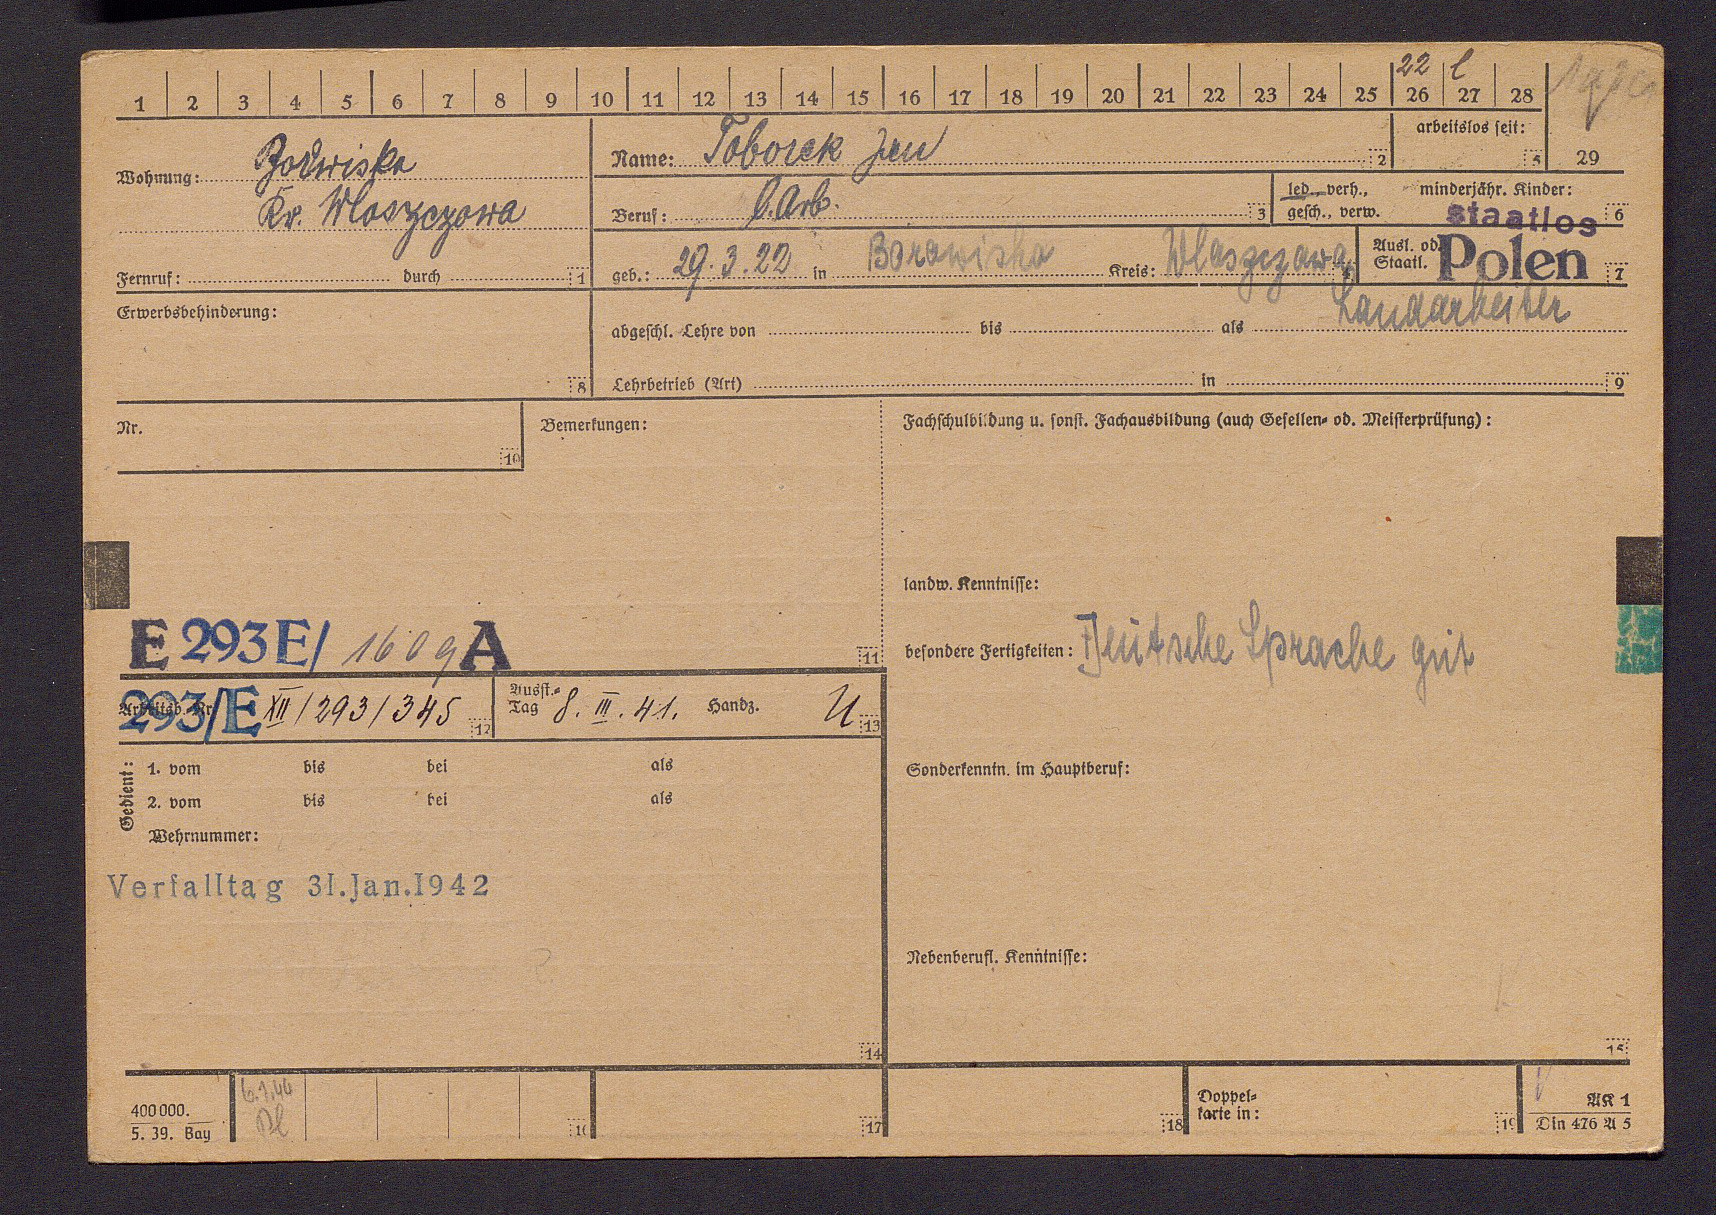 22 l
1 2 3 4 5 6 7 8 9 10 11 12 13 14 15 16 17 18 19 20 21 22 23 24 25 26 27 28
29
Wohnung:
Kr. Wloszczowa
Fernruf: durch 1
Name: Toborek Jan 2
arbeitslos seit: 5
Beruf: l. Arb. 3
led., verh., gesch., verw.
minderjähr. Kinder: 6
staatlos
geb.: 29.3.22 in Kreis: Wloszczowa 4
Ausl. od. Staatl. Polen 7
Erwerbsbehinderung: 8
abgeschl. Lehre von bis als Landarbeiter
Lehrbetrieb (Art) in 9
Nr. 10
Bemerkungen:
Fachschulbildung u. sonst. Fachausbildung (auch Gesellen- od. Meisterprüfung):
landw. Kenntnisse:
besondere Fertigkeiten: Deutsche Sprache gut
E 293E/ 1609 A 11
293/E
Arbeitsb.-Nr. XII/293/345 12
Ausst.-Tag 8. III. 41. Handz. 13
Gedient:
1. vom bis bei als
2. vom bis bei als
Wehrnummer:
Sonderkenntn. im Hauptberuf:
Verfalltag 31.Jan.1942
Nebenberufl. Kenntnisse:
14
15
400 000.
5. 39. Bay
6.1.44
16
17
18
Doppel-
karte in: 19
AK 1
Din 476 A 5